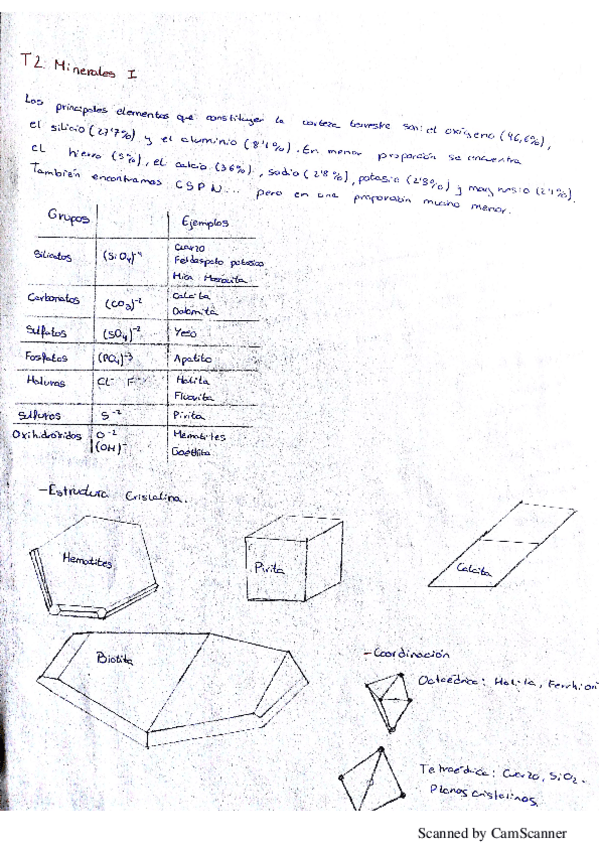 T2: Minerales I
Los principales elementos que constituyen la corteza terrestre son: el oxígeno (46,6%),
el silicio (27'7%) y el aluminio (8'1%). En menor proporción se encuentra
el hierro (5%), el calcio (3'6%), sodio (2'8%), potasio (2'8%) y magnesio (2'1%).
También encontramos C S P N ... pero en una proporción mucho menor.
Grupos Ejemplos
Silicatos (SiO4)-4 Cuarzo
Feldespato potásico
Mica Moscovita
Carbonatos (CO3)-2 Calcita
Dolomita
Sulfatos (SO4)-2 Yeso
Fosfatos (PO4)-3 Apatito
Haluros Cl- F- Halita
Fluorita
Sulfuros S-2 Pirita
Oxihidróxidos O-2 Hematites
(OH)- Goethita
-Estructura Cristalina.
Hematites
Pirita
Calcita
Biotita
-Coordinación
Octaédrica: Halita,
Tetraédrica: Cuarzo, SiO2.
Planos cristalinos.
Scanned by CamScanner